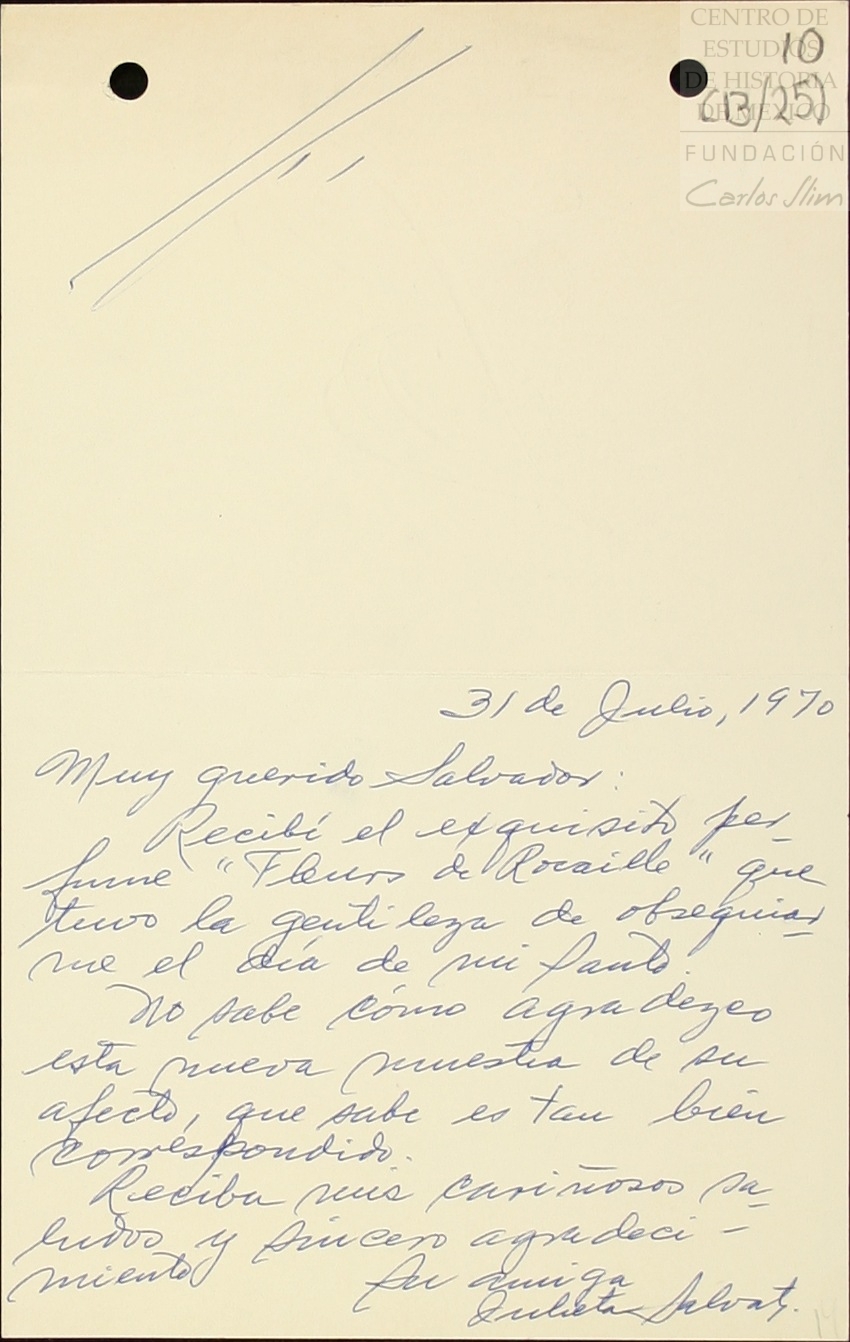 CENTRO DE
ESTUDIOS
DE HISTORIA
DE MÉXICO
FUNDACIÓN
Carlos Slim
10
(13/25)
31 de Julio, 1970
Muy querido Salvador:
Recibí el exquisito per-
fume "Fleurs de Rocaille" que
tuvo la gentileza de obsequiar-
me el día de mi Santo.
No sabe cómo agradezco
esta nueva muestra de su
afecto, que sabe es tan bien
correspondido.
Reciba mis cariñosos sa-
ludos y sincero agradeci-
miento
Su amiga
Julieta Salvat.